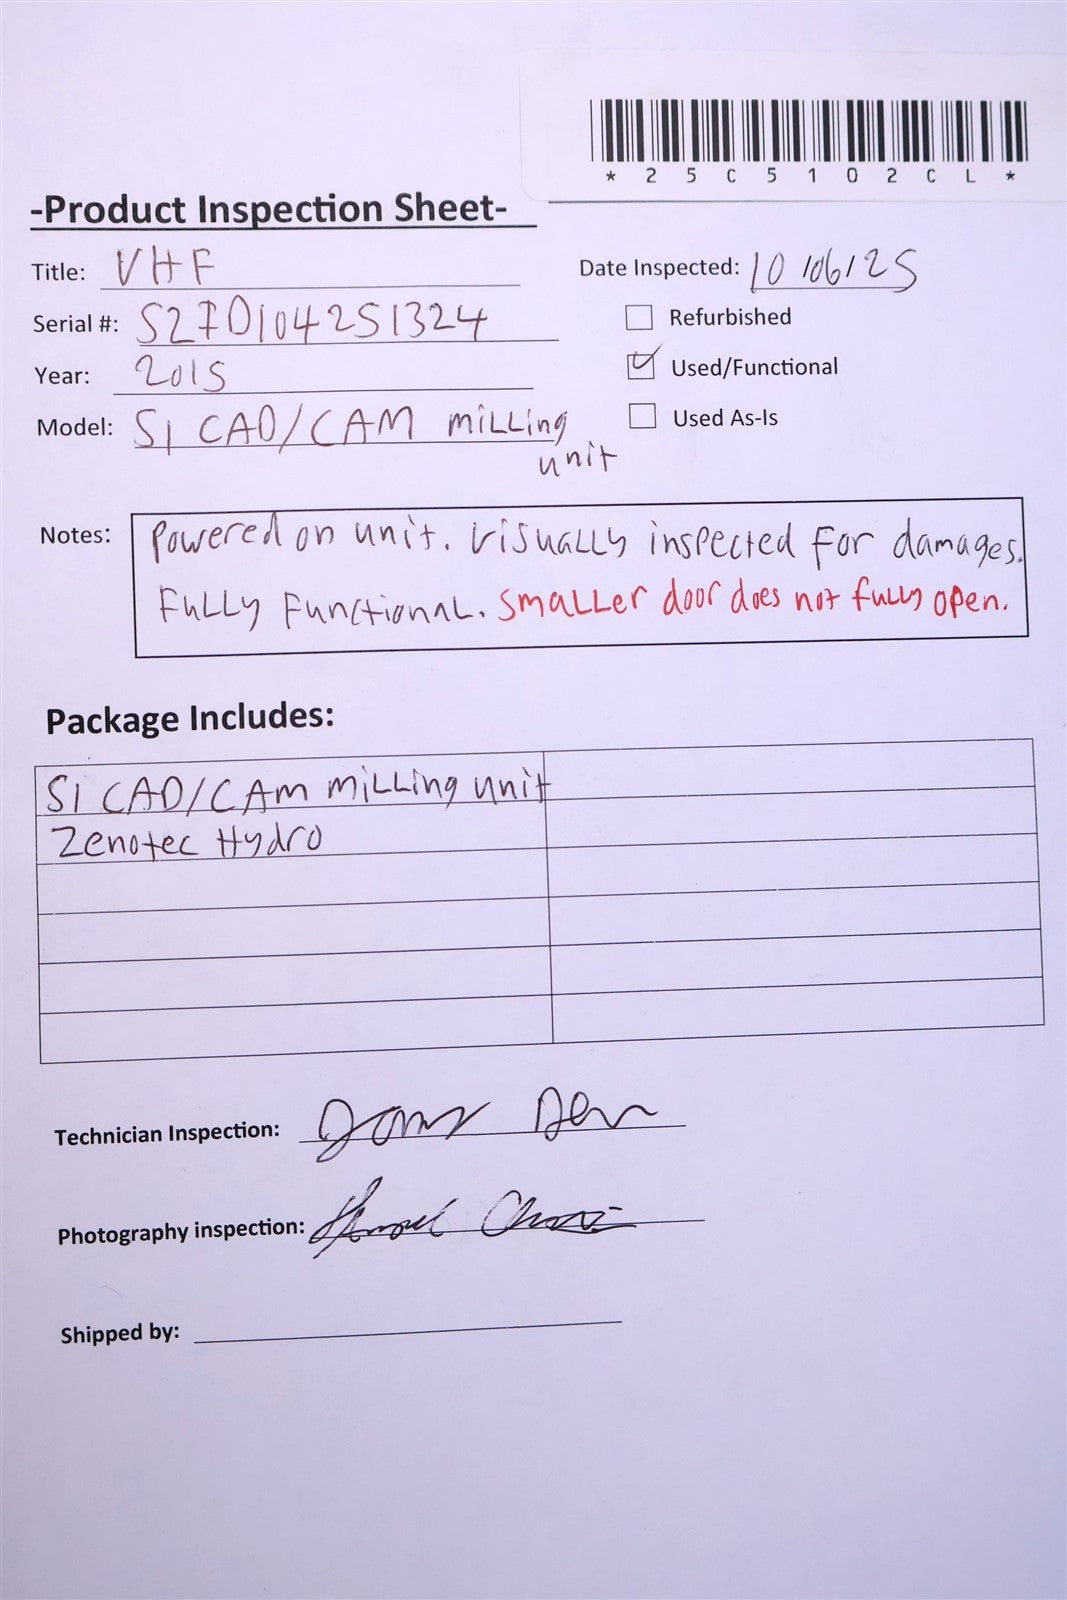 *25C5102CL*
-Product Inspection Sheet-
Title: VHF
Date Inspected: 10/06/25
Serial #: S27D104251324
Refurbished
Year: 2015
Used/Functional
Model: S1 CAD/CAM milling unit
Used As-Is
Notes: Powered on unit. Visually inspected for damages.
Fully Functional. Smaller door does not fully open.
Package Includes:
S1 CAD/CAM milling unit
Zenotec Hydro
Technician Inspection:
Photography inspection:
Shipped by: